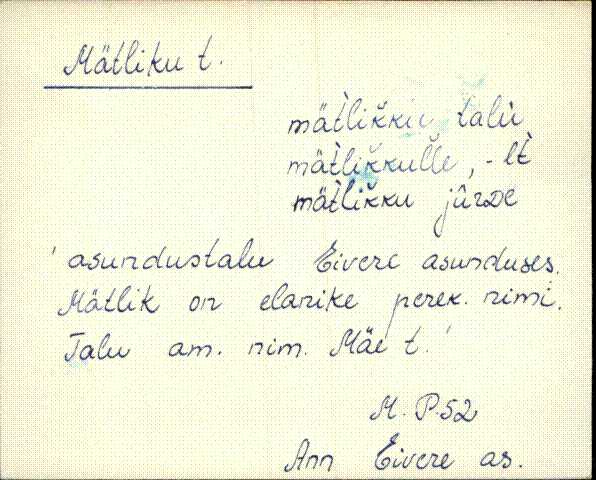 Mätliku t.
mät̀likku talu
mät̀likkulle, -lt̀
mät̀likku jûrᴅe
'asundustalu Eivere asunduses.
Mätlik on elanike perek. nimi.
Talu am. nim. Mäe t.'
M. P. 52
Ann Eivere as.